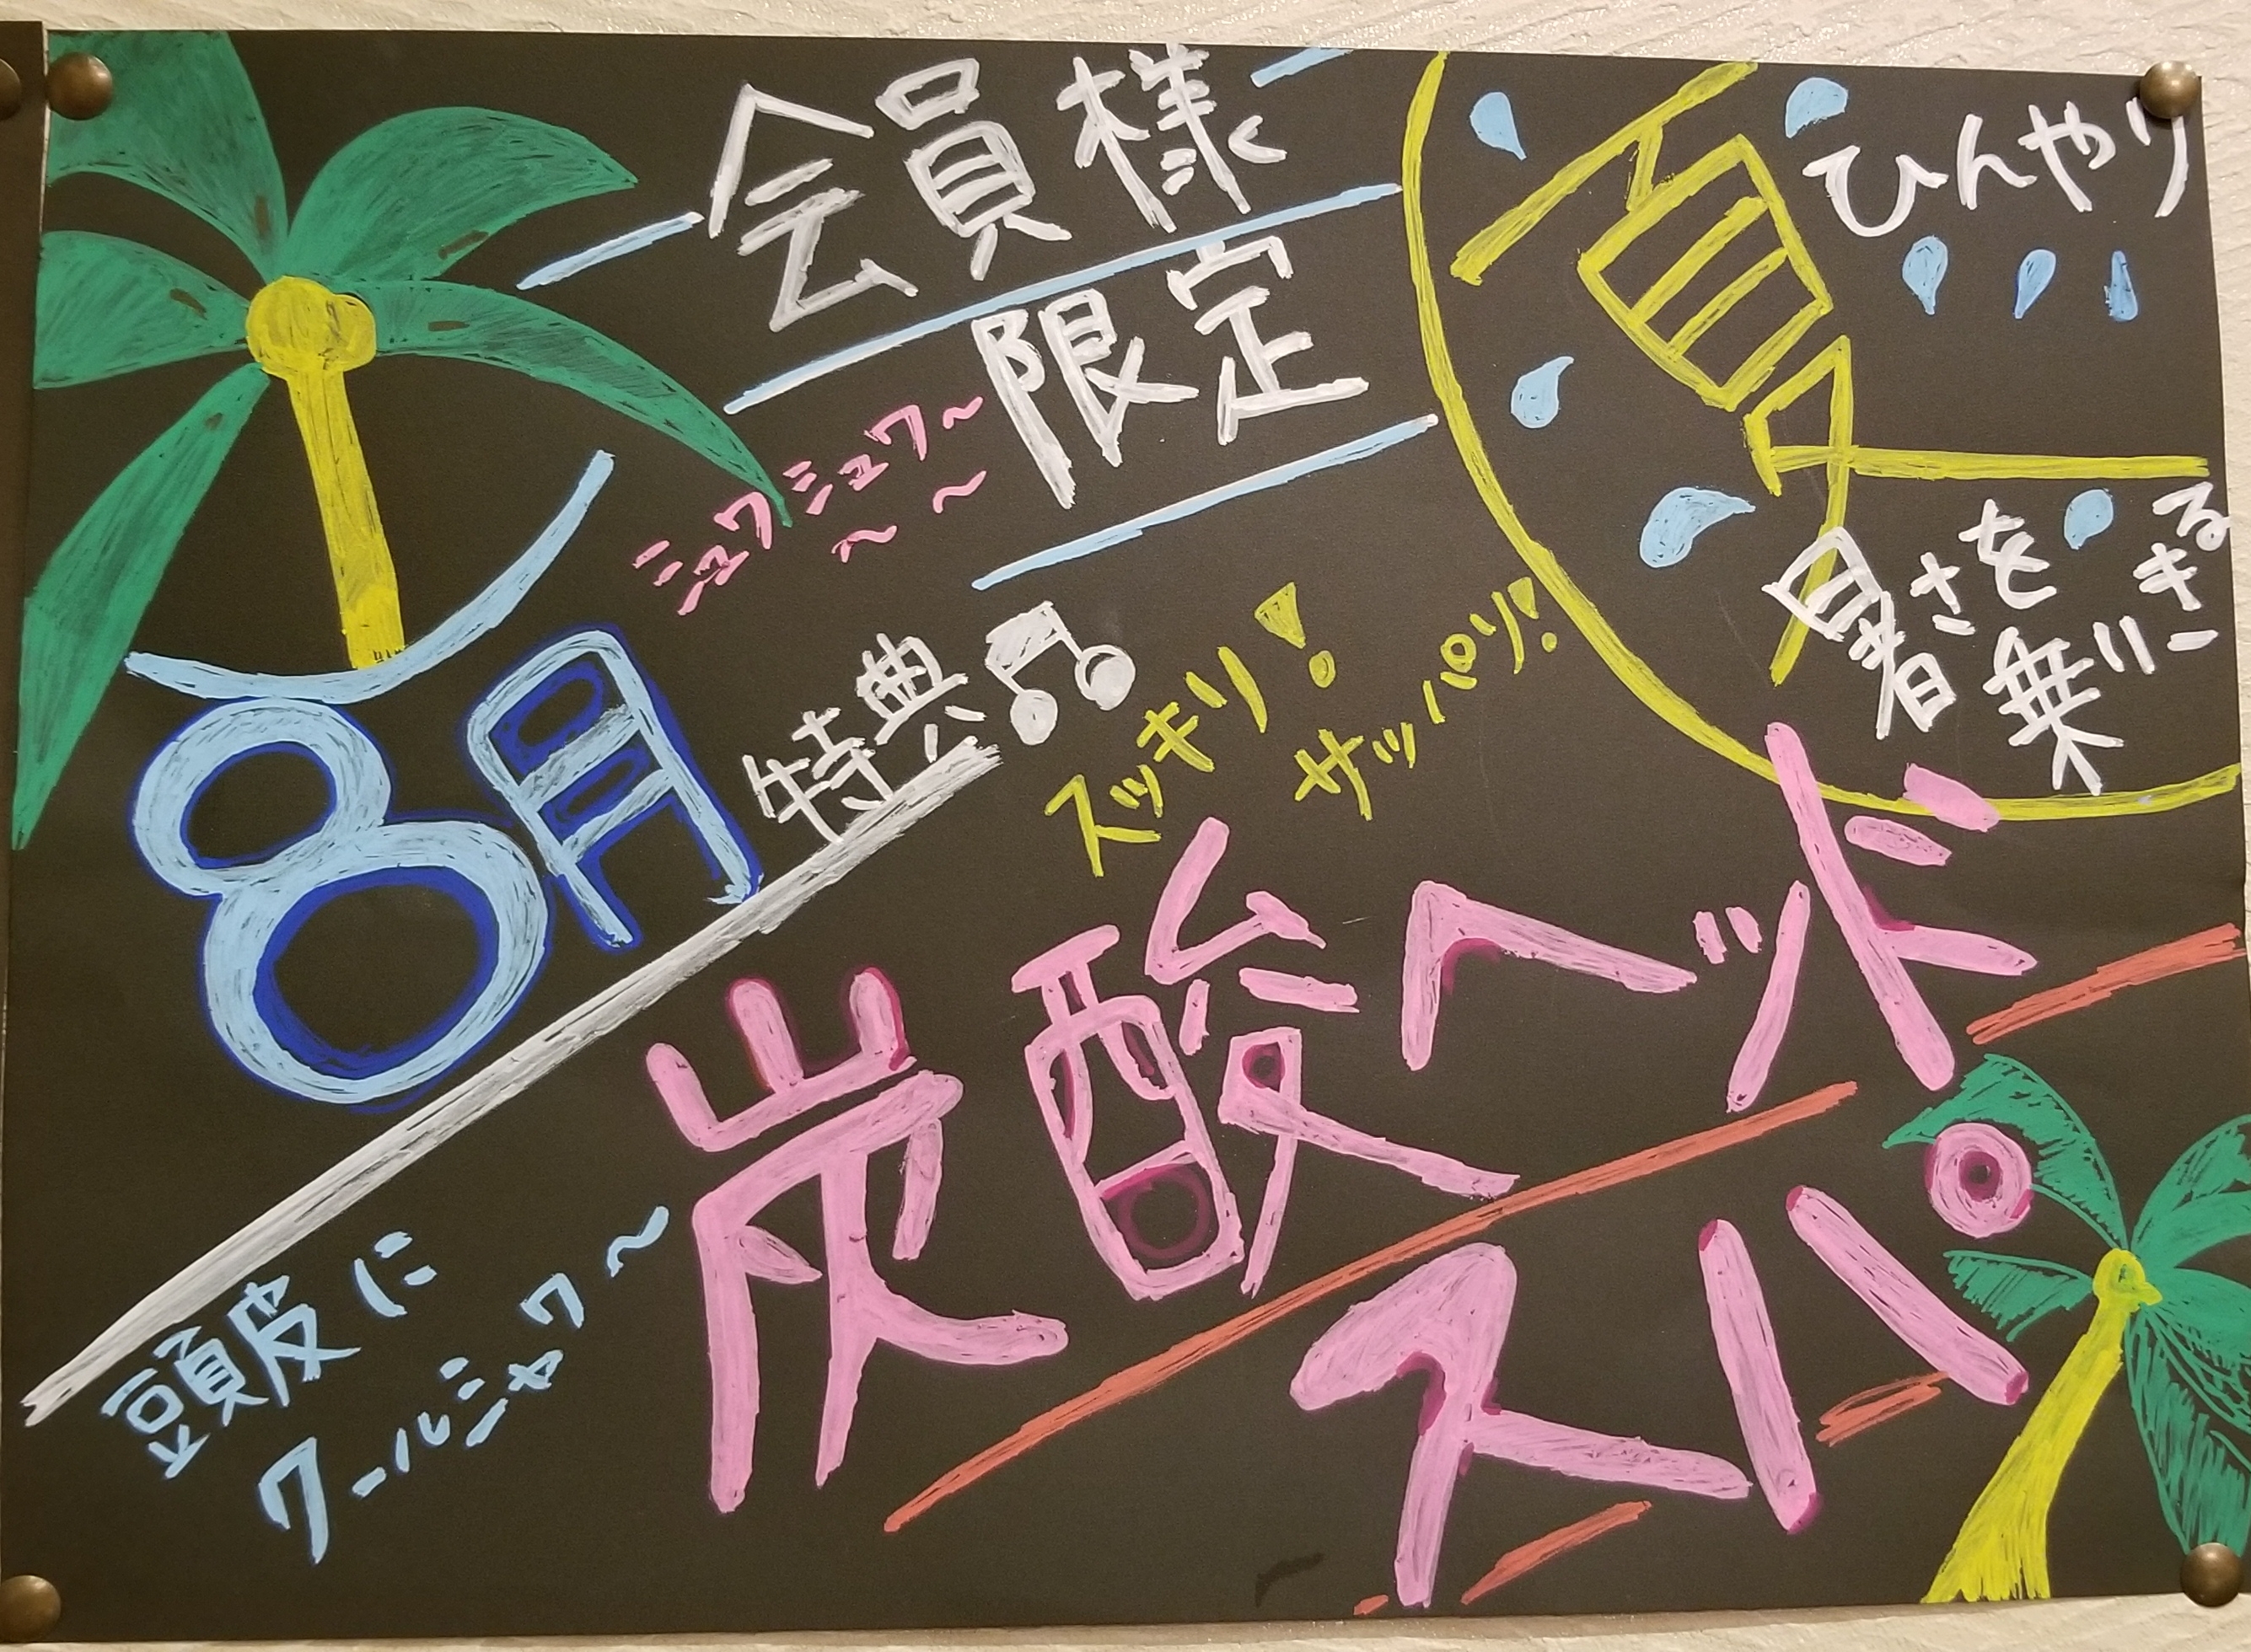 会員様
限定
夏
ひんやり
暑さを
乗りきる
シュワシュワ～
～～
8月
特典♫
スッキリ!
サッパリ!
炭酸ヘッド
スパ
頭皮に
クールシャワ～